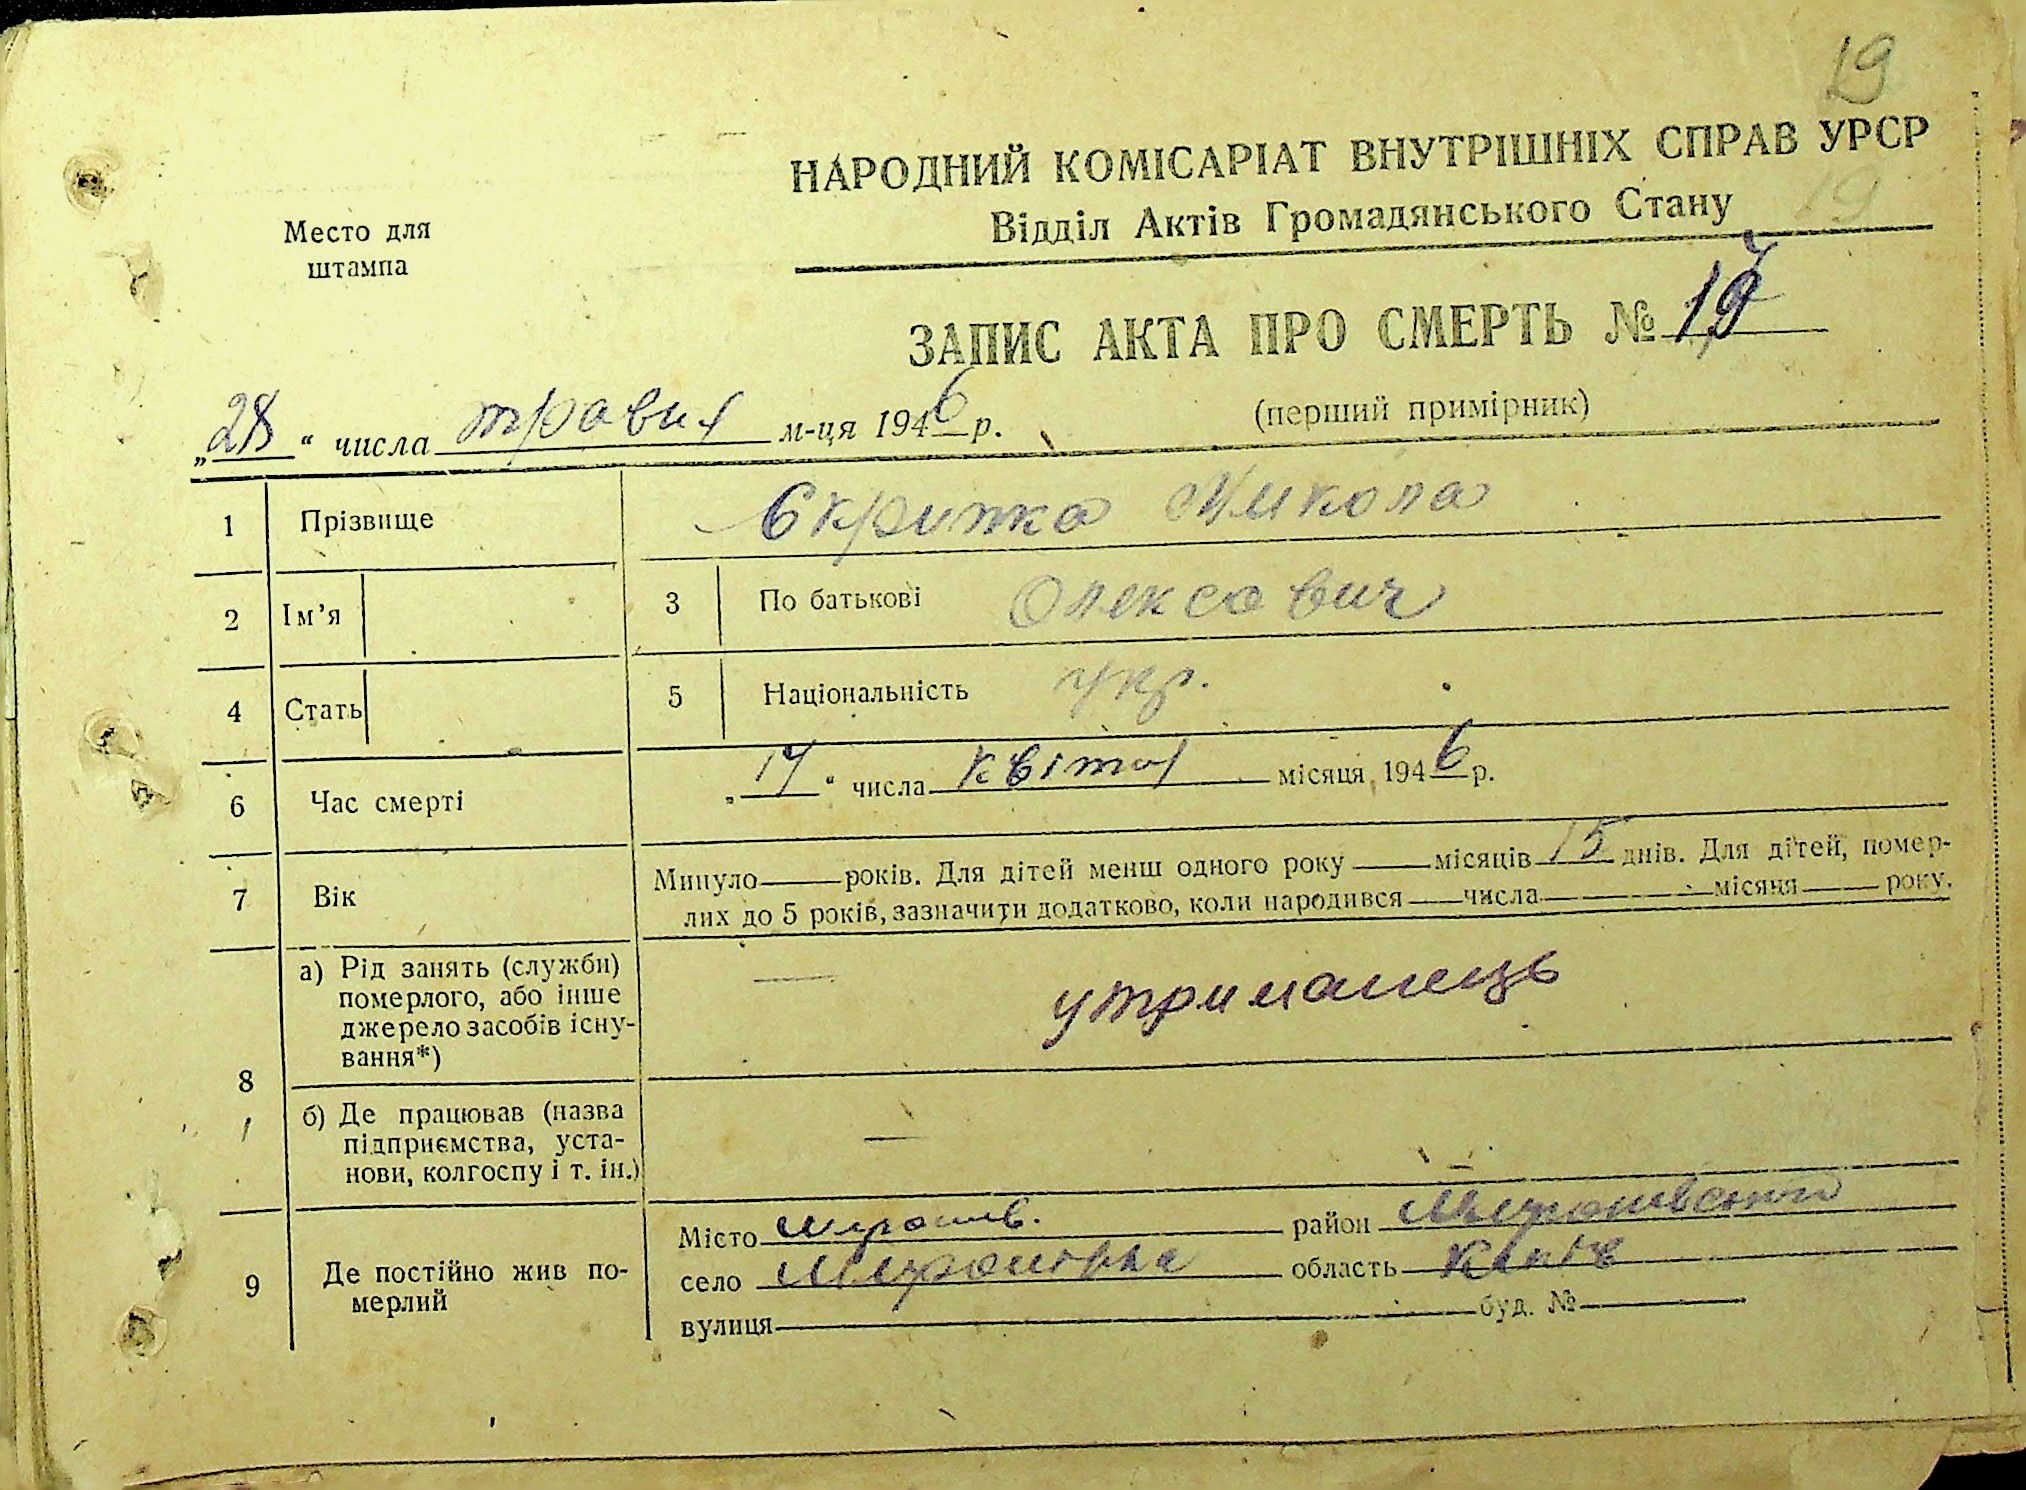 19
НАРОДНИЙ КОМІСАРІАТ ВНУТРІШНІХ СПРАВ УРСР
Відділ Актів Громадянського Стану 19
Место для
штампа
ЗАПИС АКТА ПРО СМЕРТЬ №
„28“ числа травня м-ця 1946 р. (перший примірник)
1 Прізвище Скрипка Микола
2 Ім’я 3 По батькові Олексович
4 Стать 5 Національність укр.
6 Час смерті „14“ числа квітня місяця 1946 р.
7 Вік Минуло — років. Для дітей менш одного року — місяців 15 днів. Для дітей, помер-
лих до 5 років, зазначити додатково, коли народився — числа — місяця — року.
8 а) Рід занять (служби) померлого, або інше джерело засобів існу-вання*) — утриманець
б) Де працював (назва підприємства, уста-нови, колгоспу і т. ін.) —
9 Де постійно жив по-мерлий
Місто Миронів. район Миронівський
село Миронівка область Київ
вулиця буд. №